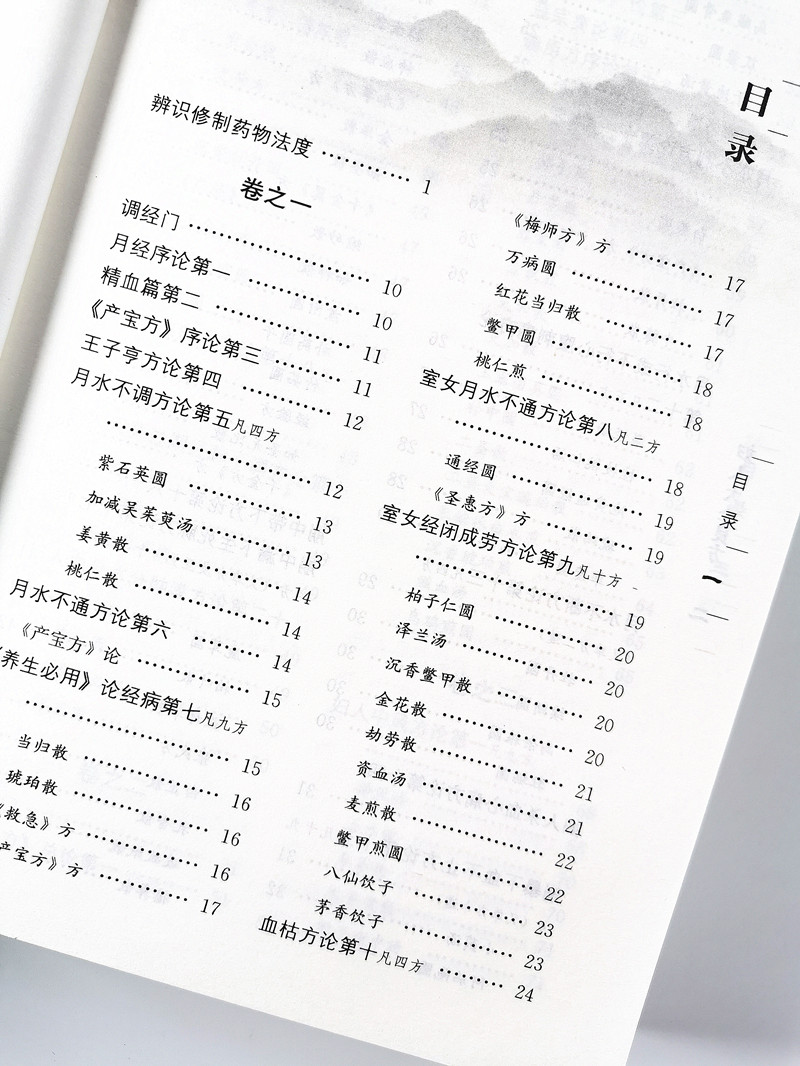 目录
辨识修制药物法度 ………… 1
卷之一
调经门 ………… 10
月经序论第一 ………… 10
精血篇第二 ………… 11
《产宝方》序论第三 ………… 11
王子亨方论第四 ………… 12
月水不调方论第五凡四方
………… 12
紫石英圆 ………… 13
加减吴茱萸汤 ………… 13
姜黄散 ………… 14
桃仁散 ………… 14
月水不通方论第六 ………… 14
《产宝方》论 ………… 15
《养生必用》论经病第七凡九方
………… 15
当归散 ………… 16
琥珀散 ………… 16
《救急》方 ………… 16
产宝方》方 ………… 17
《梅师方》方 ………… 17
万病圆 ………… 17
红花当归散 ………… 17
鳖甲圆 ………… 18
桃仁煎 ………… 18
室女月水不通方论第八凡二方
………… 18
通经圆 ………… 19
《圣惠方》方 ………… 19
室女经闭成劳方论第九凡十方
………… 19
柏子仁圆 ………… 20
泽兰汤 ………… 20
沉香鳖甲散 ………… 20
金花散 ………… 20
劫劳散 ………… 21
资血汤 ………… 21
麦煎散 ………… 22
鳖甲煎圆 ………… 22
八仙饮子 ………… 23
茅香饮子 ………… 23
血枯方论第十凡四方 ………… 24
目录
1